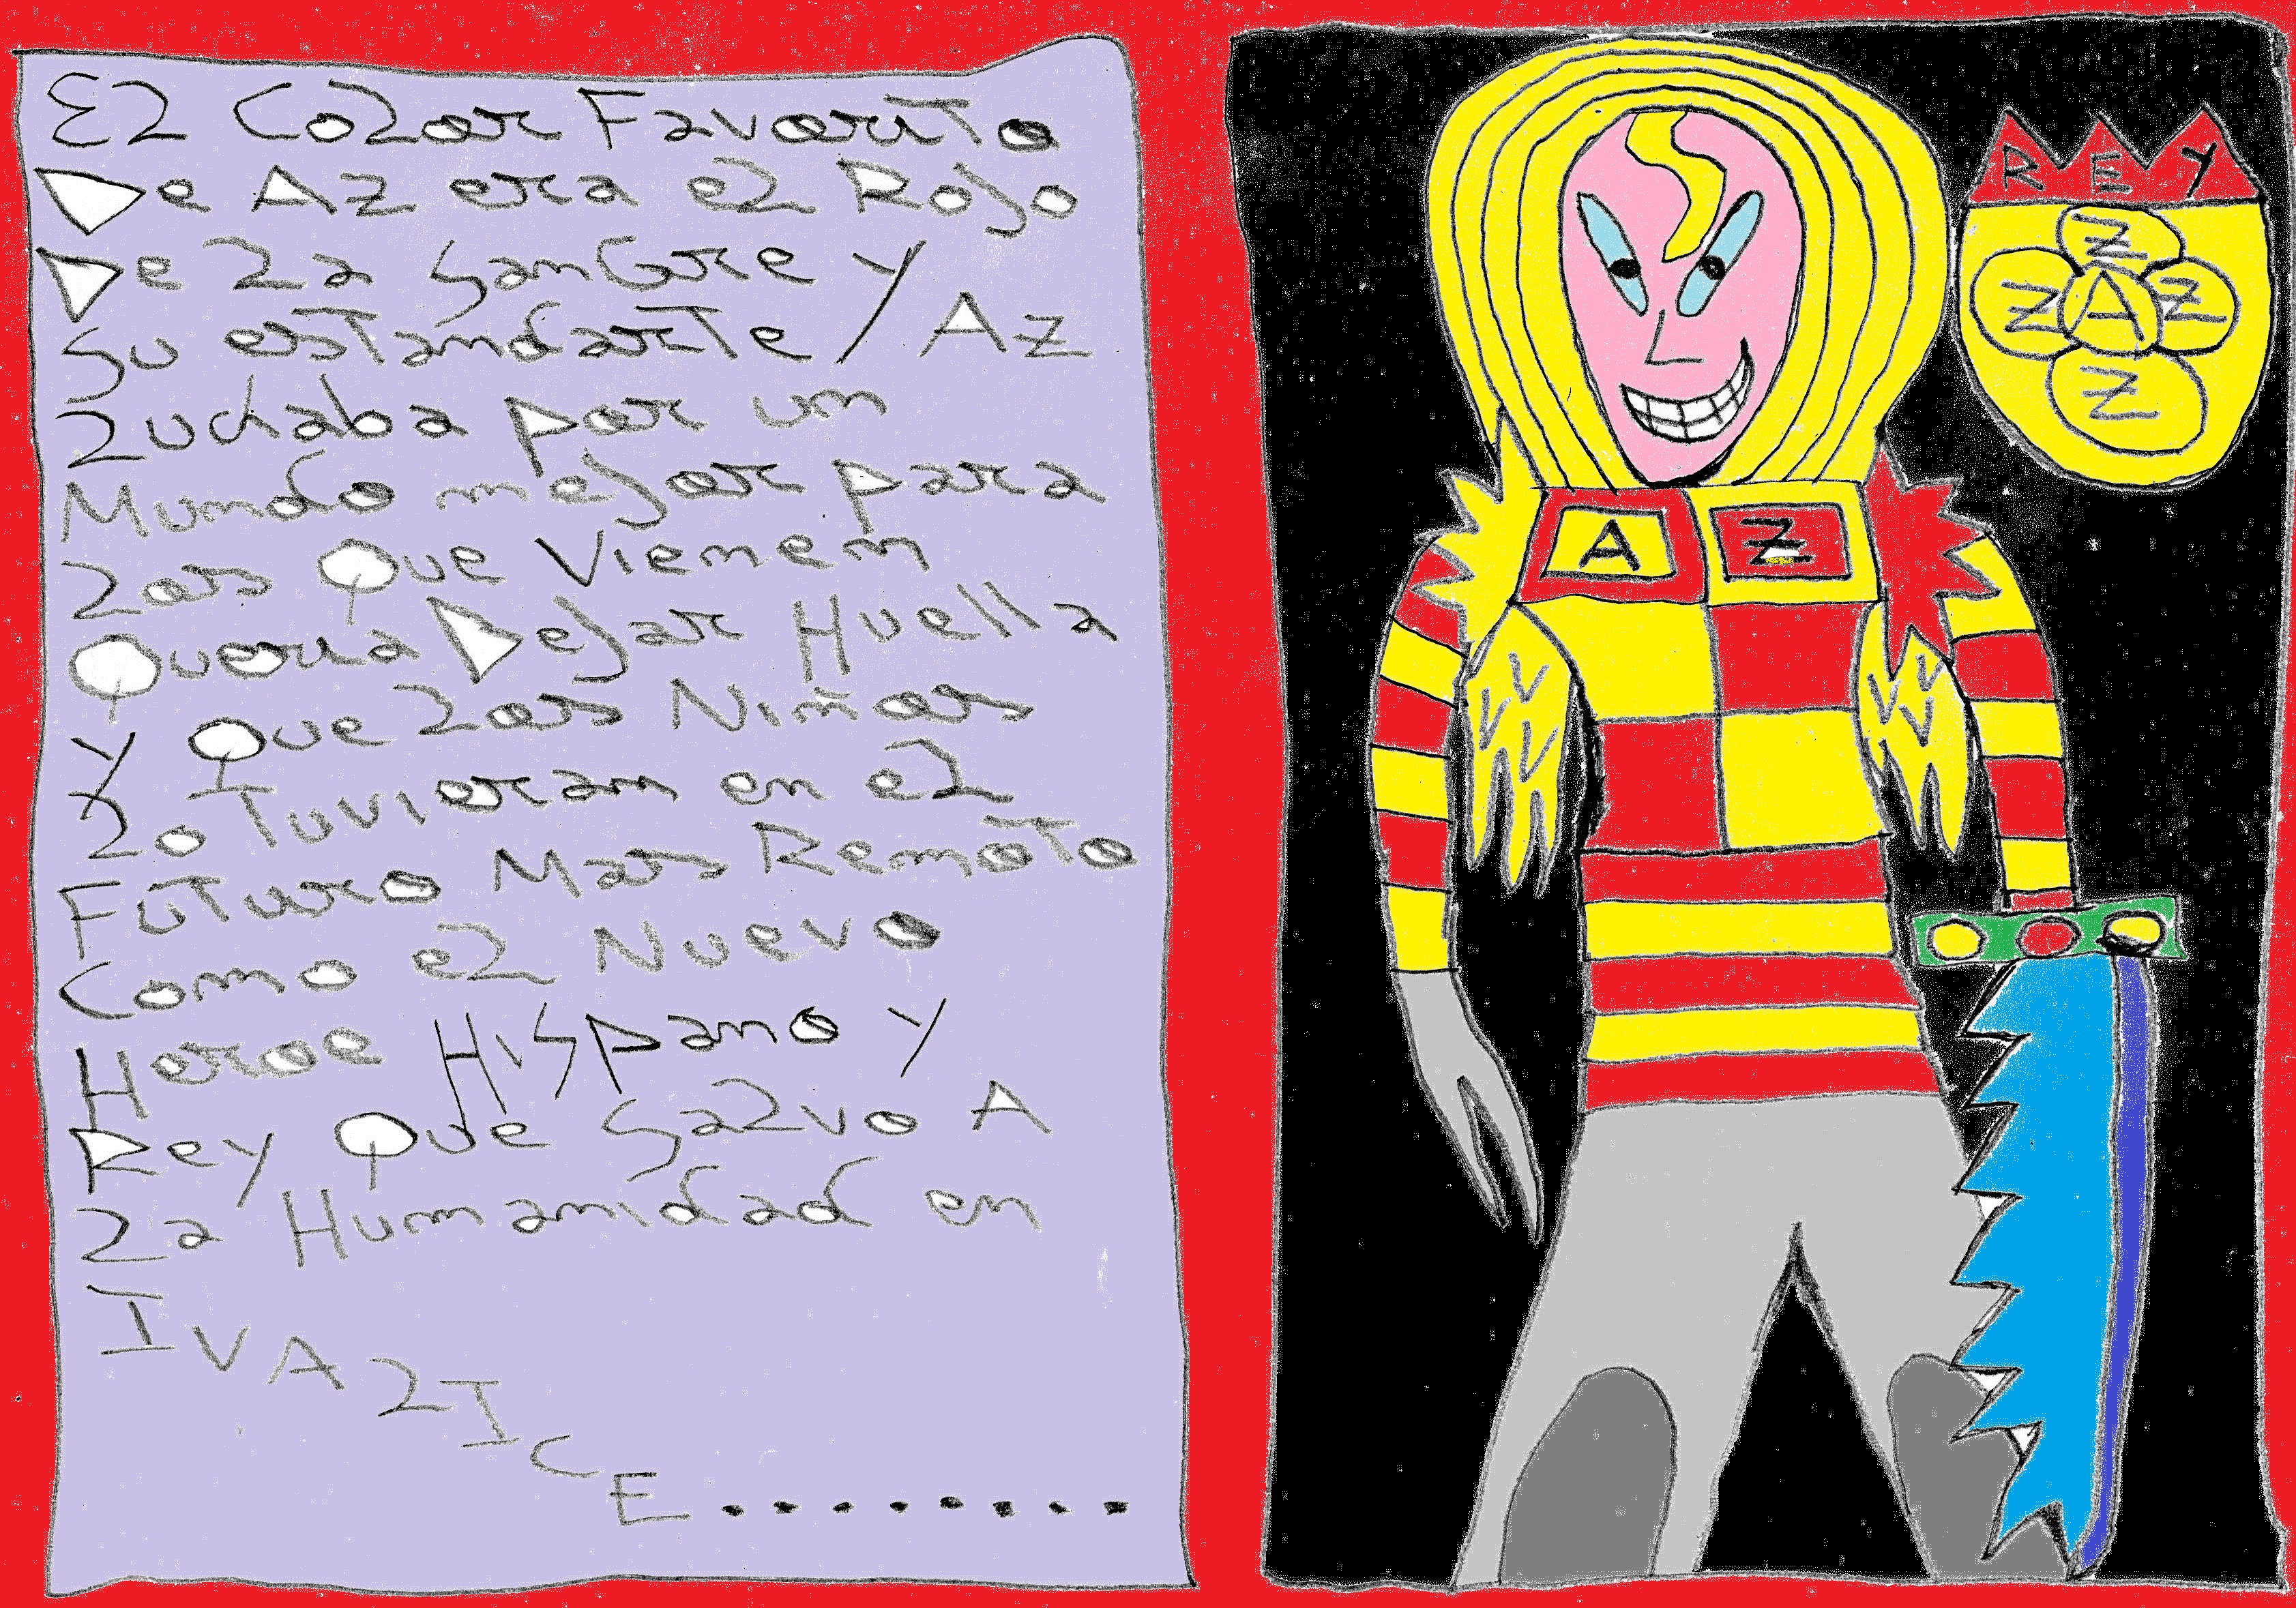 El Color Favorito
De Az era el Rojo
De la SanGre y
Su estandarte y Az
luchaba por un
Mundo mejor para
los Que Vienen
Queria Dejar Huella
y Que los Niños
lo Tuvieran en el
Futuro Mas Remoto
Como el Nuevo
Heroe HiSpano y
Rey Que Salvo A
la Humanidad en
IVALICE........
REY
Z
Z A Z
Z
A Z